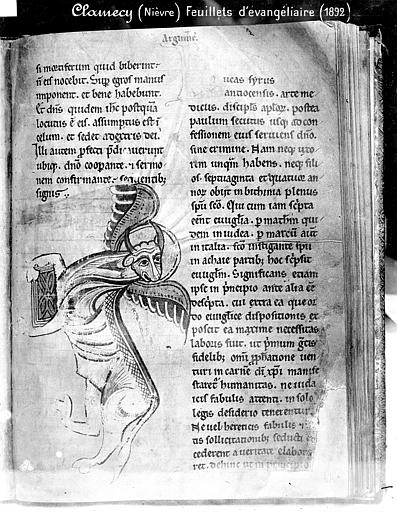 Clamecy (Nièvre) Feuillets d'évangéliaire (1892)
si mortiferum quid biberint
ñ eis nocebit. Sup egros manus
imponent. et bene habebunt.
Et dñs quidem ihc postquā
locutus ē eis. assumptus est ī
celum. et sedet a dextris dei.
Illi autem profecti
ubiq. dño coopante. sermo
nem confirmante. sequentib;
signis.
ucas syrus
antiocensis. arte me
dicus. discipls aplor. postea
paulum secutus usq. ad con
fessionem eius serviens dño.
sine crimine. Nam neq. uxo
rem unqm̄ habens. neq. fili
os. septuaginta et quatuor an
nor obiit in bithinia plenus
spū scō. Qui cum iam scripta
eēnt evvglia. p matheū qui
dem in iudea. p marcū aut
in italia. scō instigante spū
in achaie partib; hoc scripsit
evvglīm. Significans etiam
ipse in principio ante alia eē
descripta. cui extra ea que or
do evvglice dispositionis ex
poscit ea maxime necessitas
laboris fuit. ut primum grecis
fidelib; omī prophetatione ven
turi in carnē dī xpī manife
stare humanitas. ne iuda
icis fabulis attenti. in solo
legis desiderio tenerentur.
Ne vel hereticis fabulis
tis sollicitationib; seducti
cederent a veritate elabora
ret. dehinc ut in principio